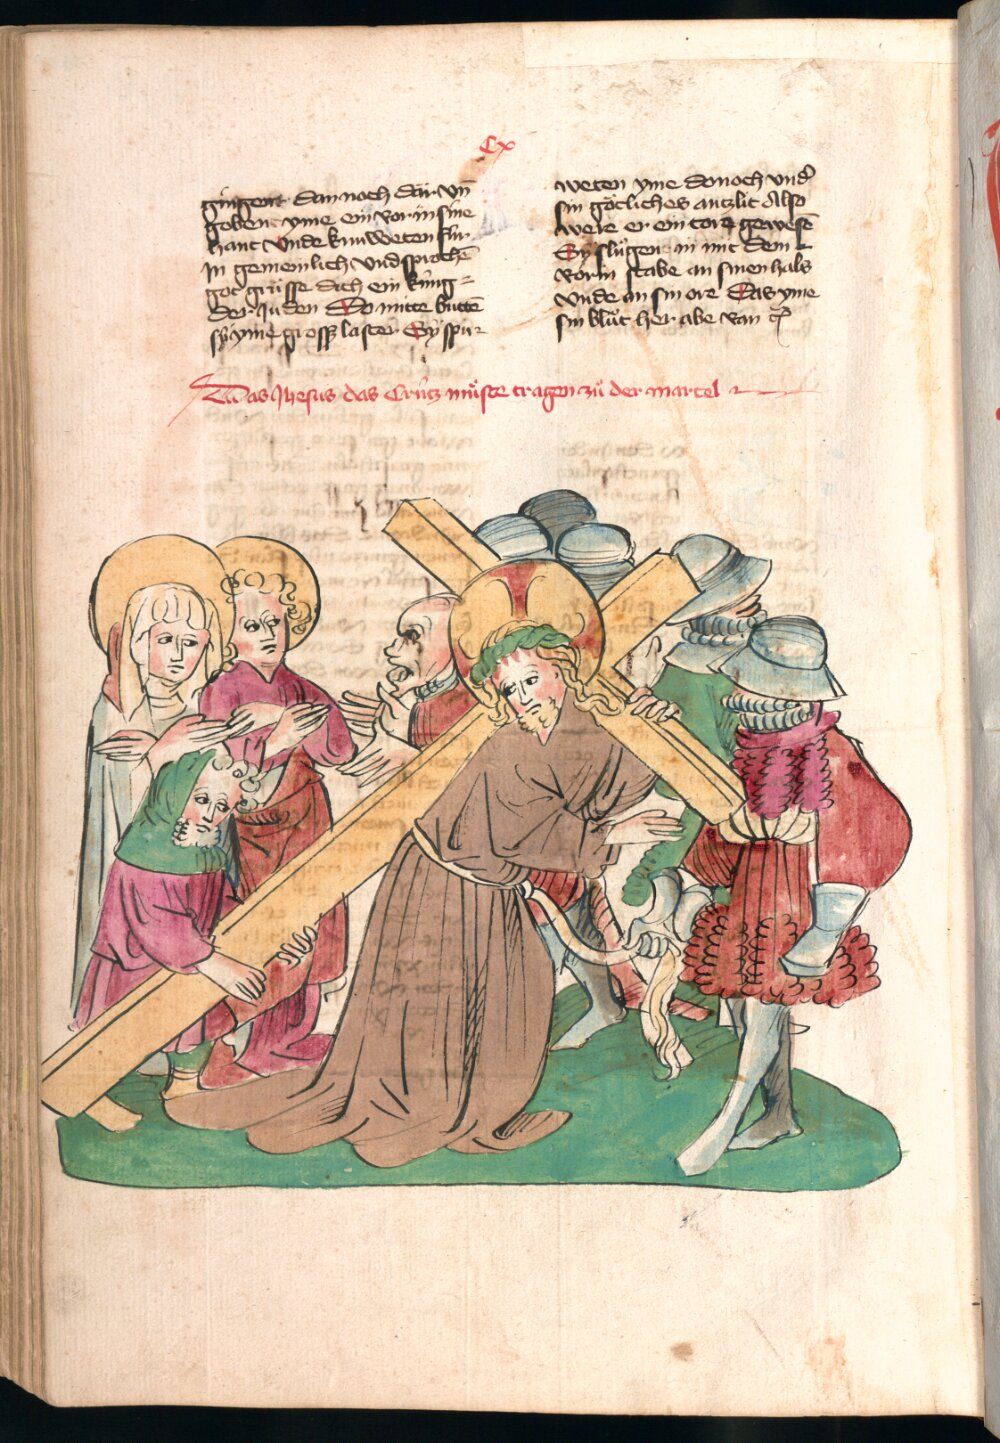 Cx
gingent dannoch dar vn̄
goben yme ein ror in sine
hant vnde knuweten fúr
jn gemeinlich vnd sprochē
got grüsse dich ein kúng
der Juden Do mitte buttē
sÿ yme gross laster Sÿ spu
weten yme donoch vnd
sin götliches antzlit Also
were er ein tor gewesē
Sÿ slügen in mit dem
rorin stabe an sinen hals
vnde an sin ore Das yme
sin blůt her abe ran
Das Jhesus das Crútz můste tragen zů der martel